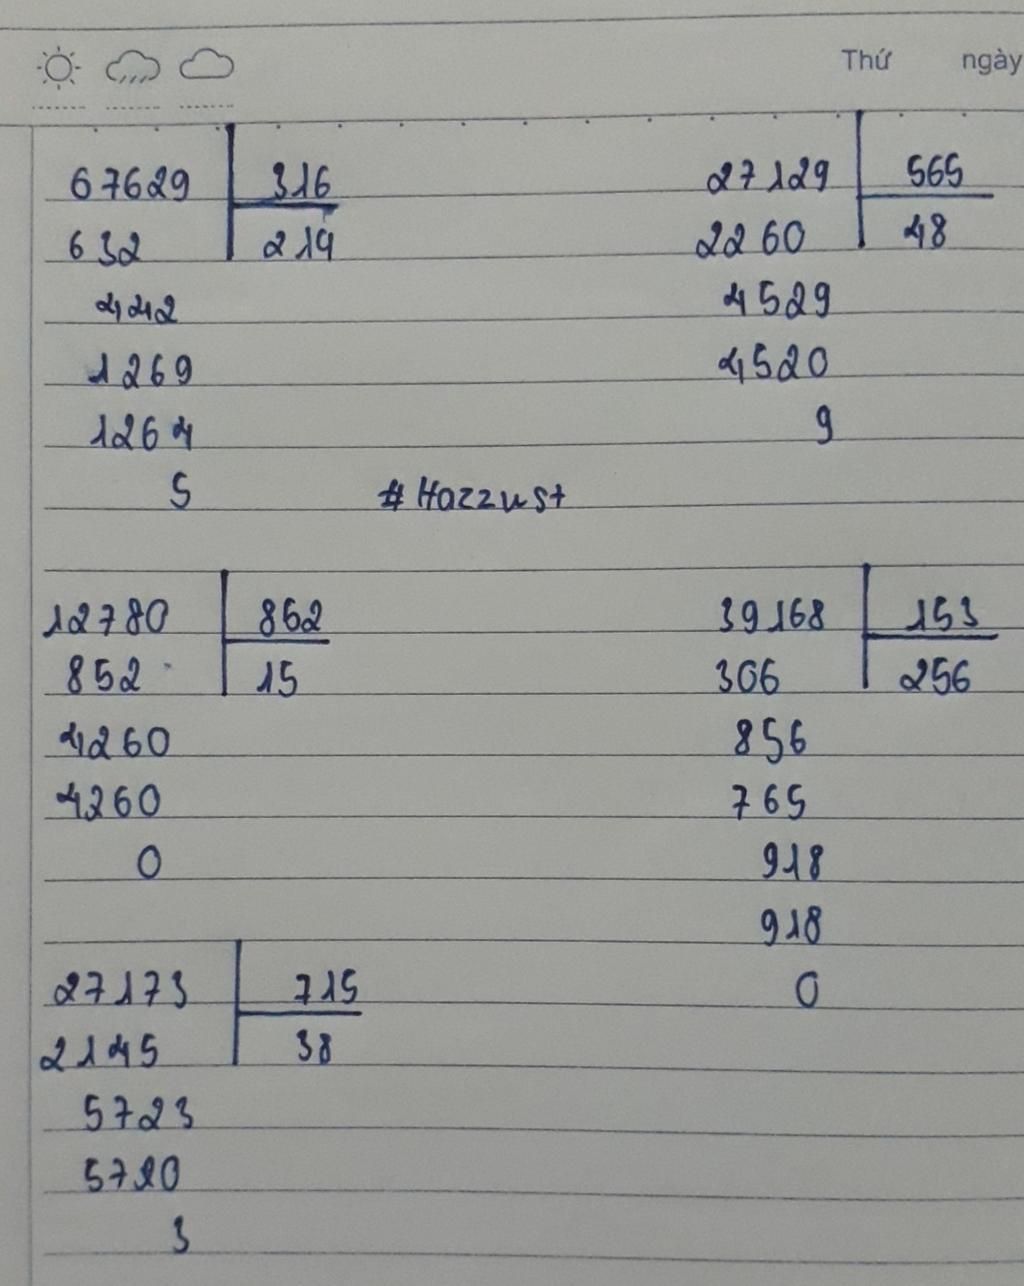 Thứ ngày
67629 316
632 214
442
1269
1264
5
27129 565
2260 48
4529
4520
9
#Hazzust
12780 862
852 15
4260
4260
0
39168 153
306 256
856
765
918
918
0
27173 715
2145 38
5723
5720
3